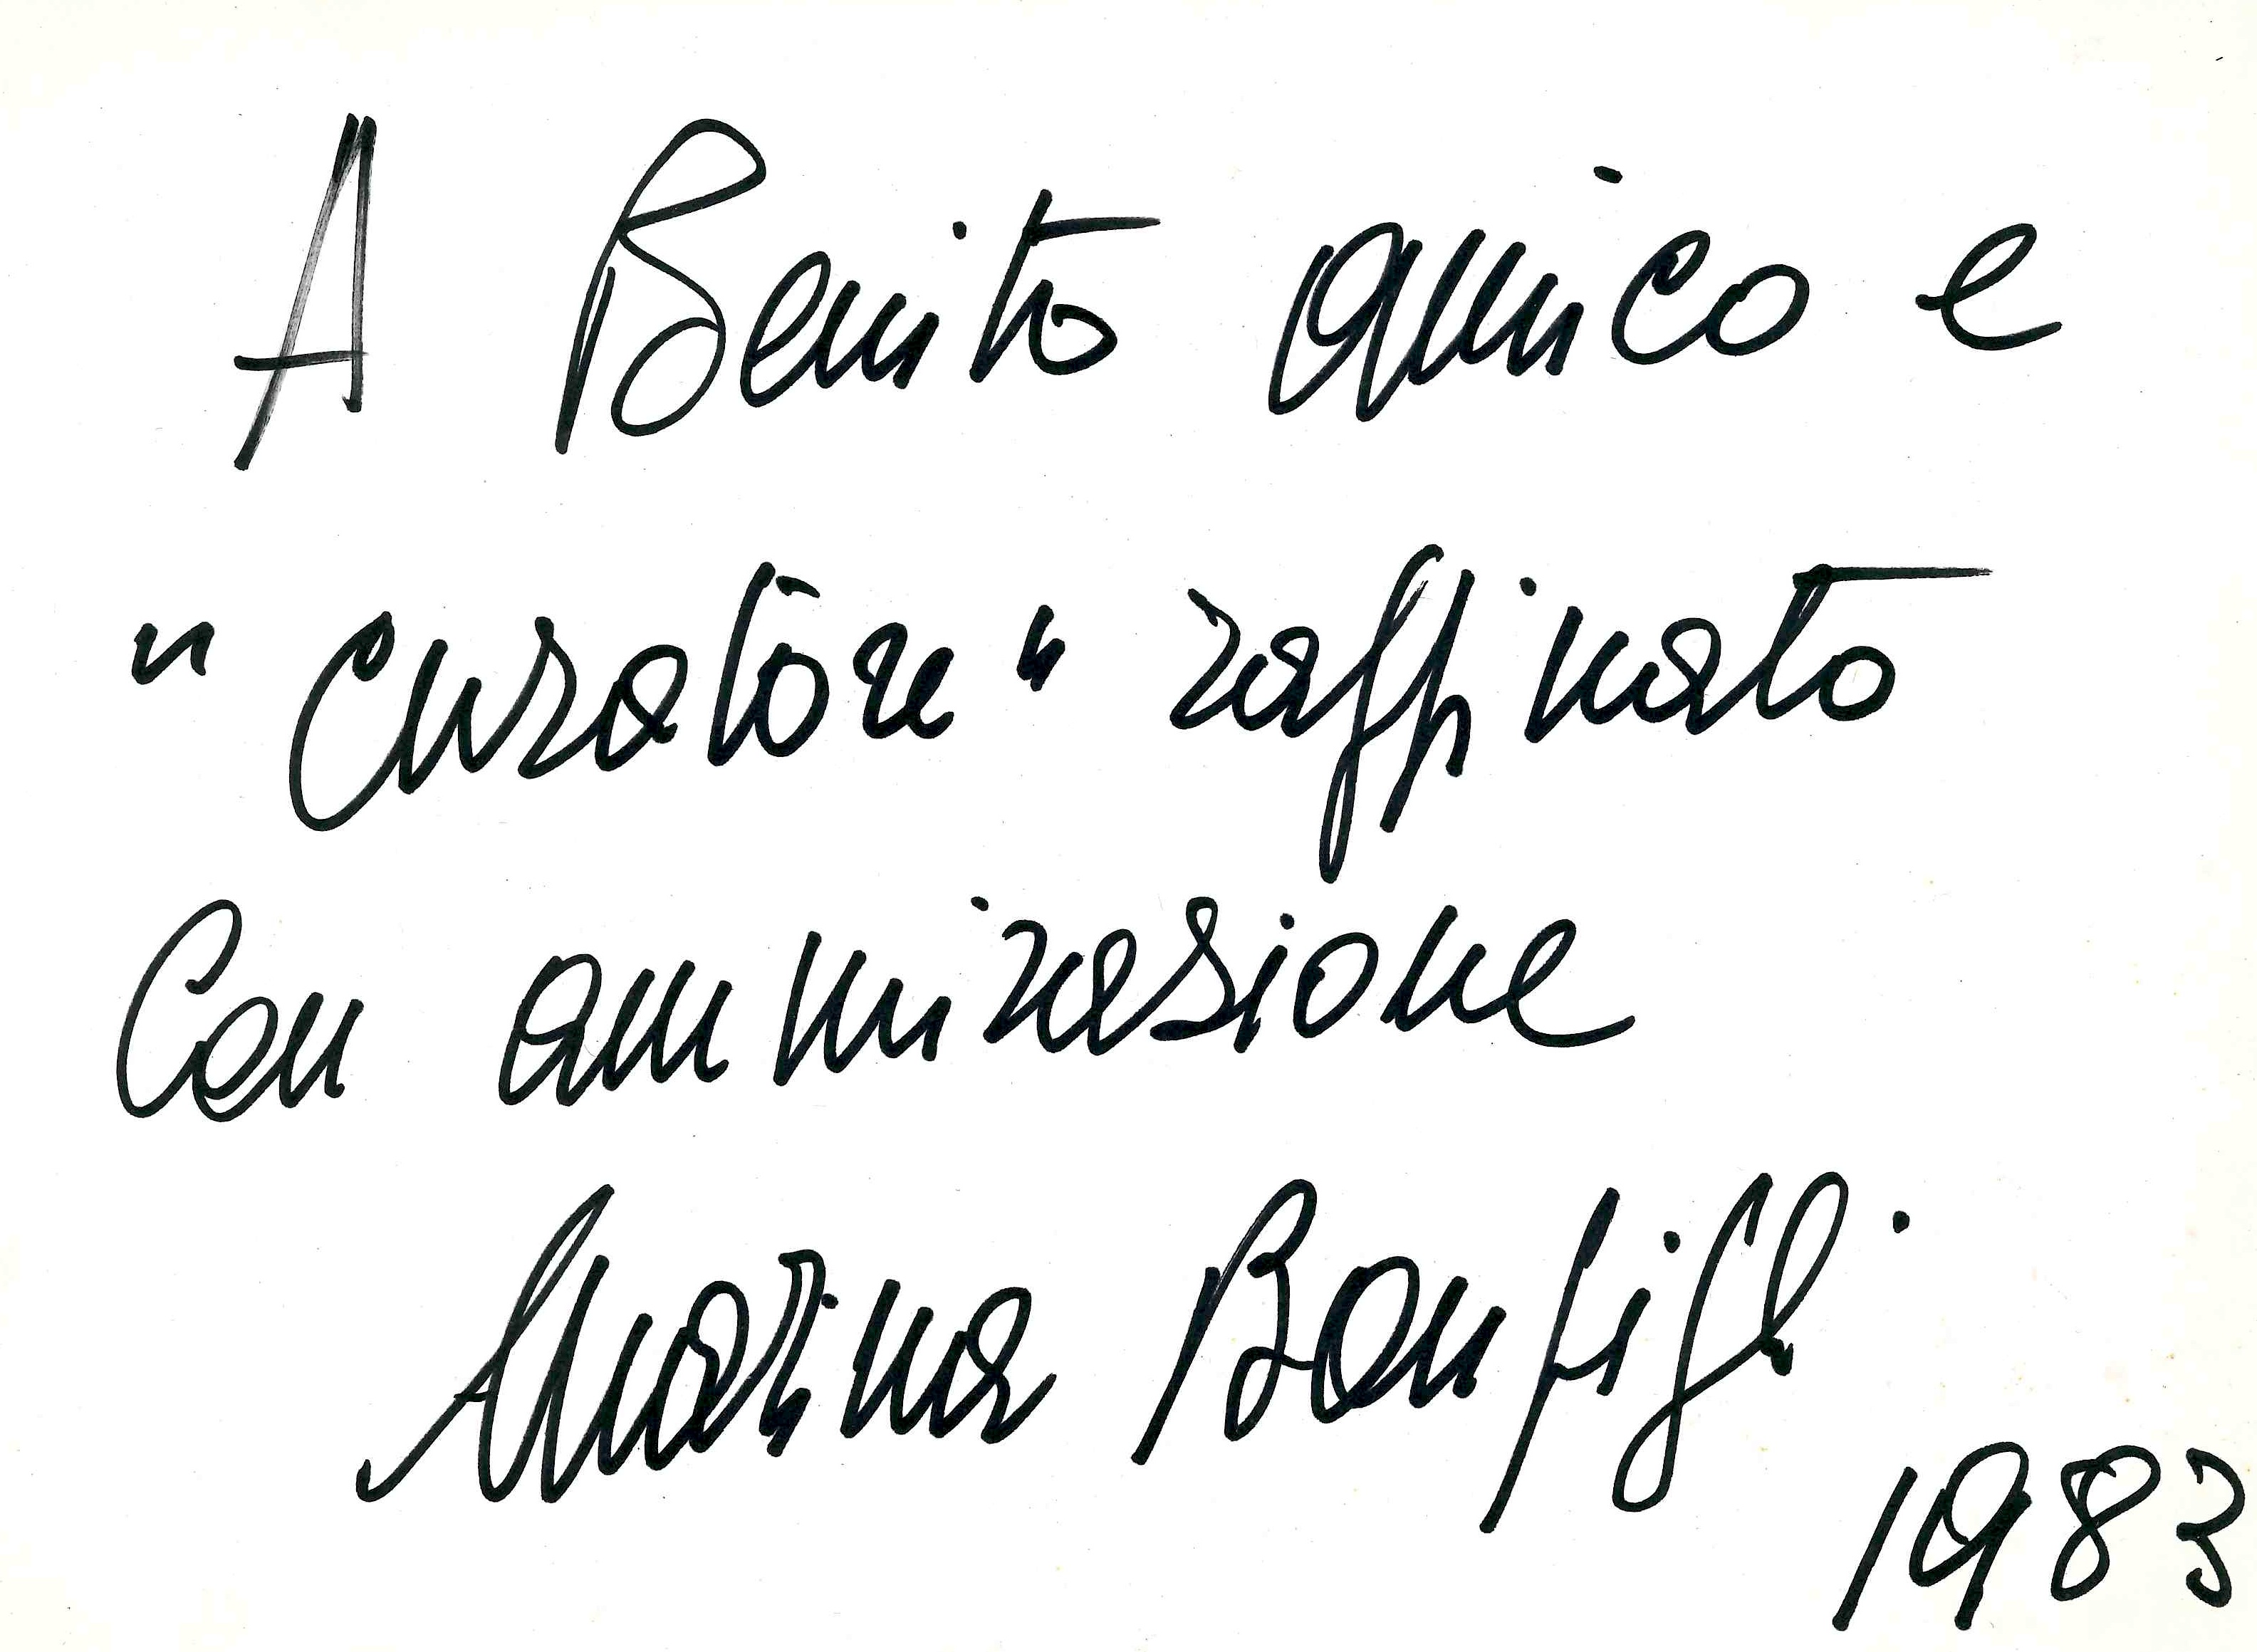 A Benito amico e
"curatore" raffinato
Con ammirasione
Marina Bonfigli
1983